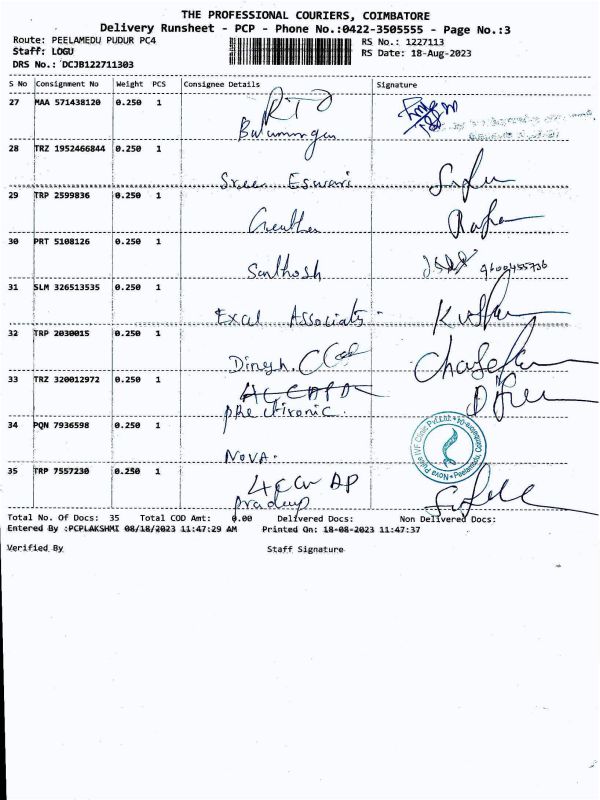 THE PROFESSIONAL COURIERS, COIMBATORE
Delivery Runsheet - PCP - Phone No.:0422-3505555 - Page No.:3
Route: PEELAMEDU PUDUR PC4 RS No.: 1227113
Staff: LOGU RS Date: 18-Aug-2023
DRS No.: DCJB122711303
S No Consignment No Weight PCS Consignee Details Signature
27 MAA 571438120 0.250 1 RTO
28 TRZ 1952466844 0.250 1
Sree Eswari
29 TRP 2599836 0.250 1
30 PRT 5108126 0.250 1
Santhosh 9600455736
31 SLM 326513535 0.250 1
Excel Associats
32 TRP 2030015 0.250 1
Dinesh.
33 TRZ 320012972 0.250 1
34 PQN 7936598 0.250 1
NOVA.
Nova Pulse IVF Clinic Pvt.Ltd. Peelamedu, Coimbatore-04
35 TRP 7557230 0.250 1
pradeep
Total No. Of Docs: 35 Total COD Amt: 0.00 Delivered Docs: Non Delivered Docs:
Entered By :PCPLAKSHMI 08/18/2023 11:47:29 AM Printed On: 18-08-2023 11:47:37
Verified By Staff Signature